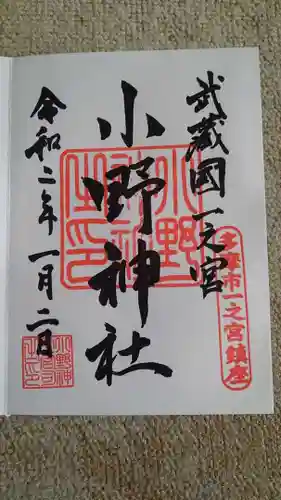 武蔵国一之宮
多摩市一之宮鎮座
小野神社
令和二年一月二日